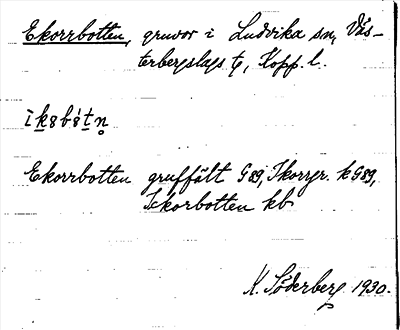 Ekorrbotten, gruvor i Ludvika sn, Väs-
terbergslags tg, Kopp. l.
Ekorrbotten gruffält G 89, Ikorrgr. k G89,
Ickorbotten kb
K. Söderberg 1930.